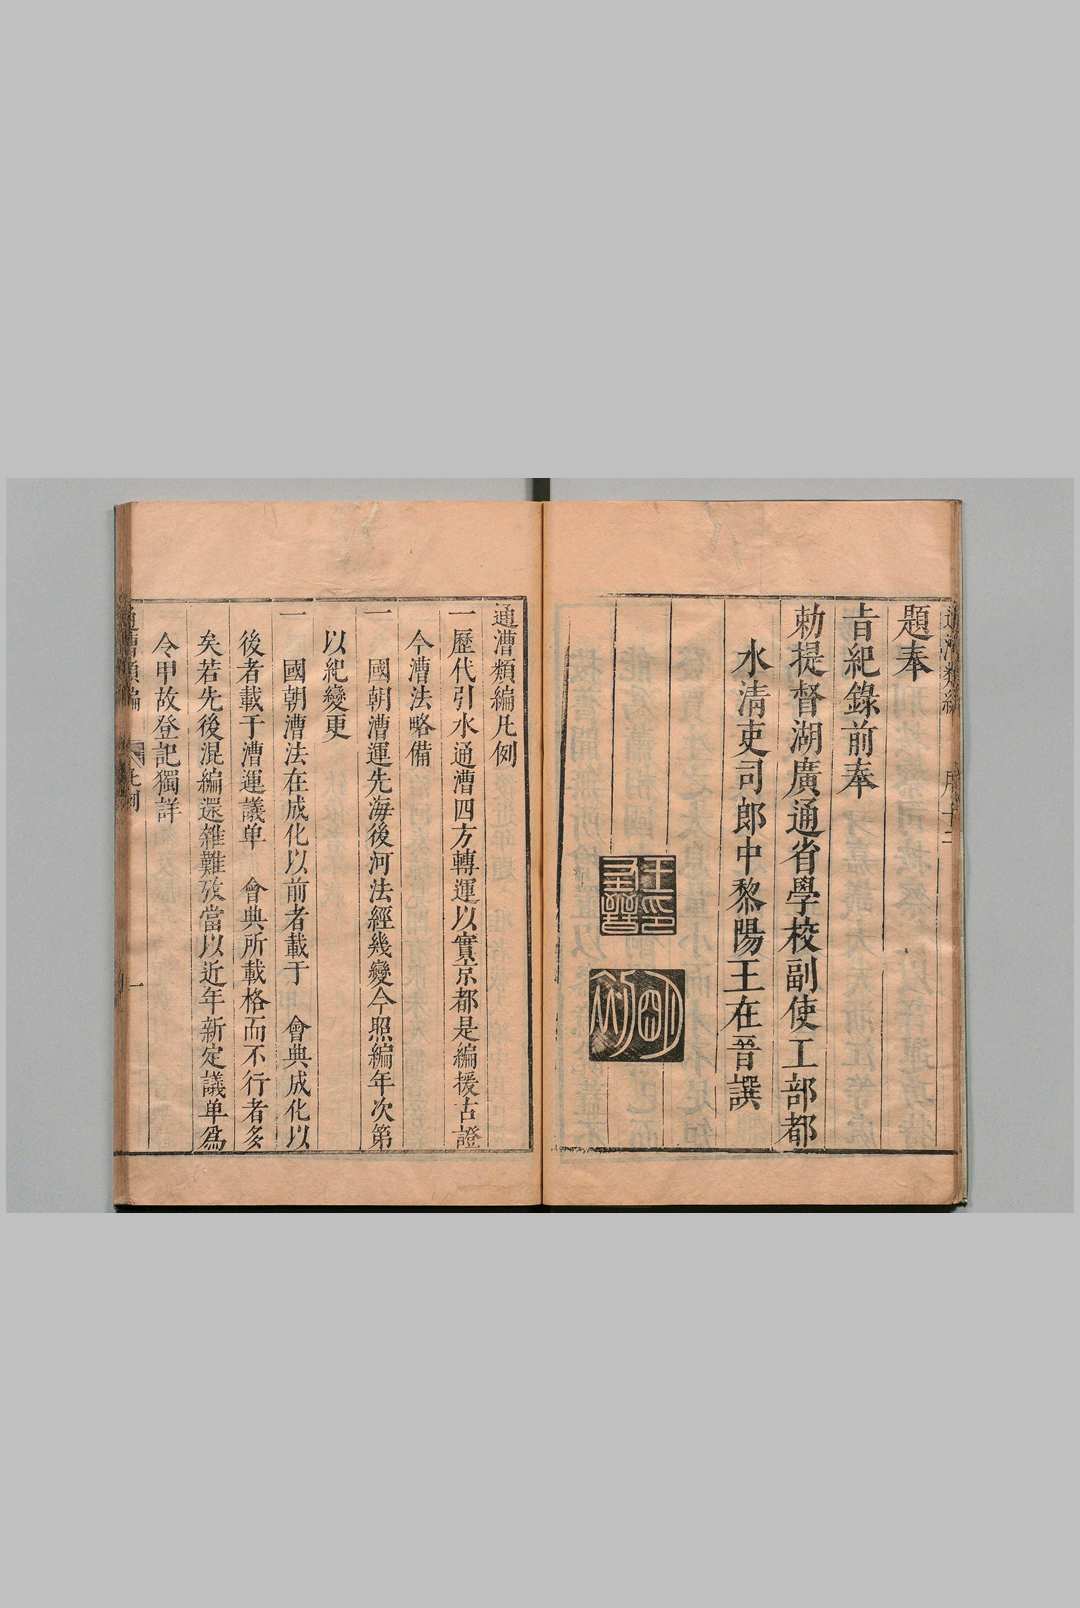 題奉
旨紀錄前奉
勅提督湖廣通省學校副使工部都
水清吏司郎中黎陽王在晉譔
王在晉印
明初
通漕類編凡例
一歷代引水通漕四方轉運以實京都是編援古證
今漕法略備
一國朝漕運先海後河法經幾變今照編年次第
以紀變更
一國朝漕法在成化以前者載于會典成化以
後者載于漕運議单會典所載格而不行者多
矣若先後混編還雜難攷當以近年新定議单爲
令甲故登記獨詳
通漕類編
凡例
一